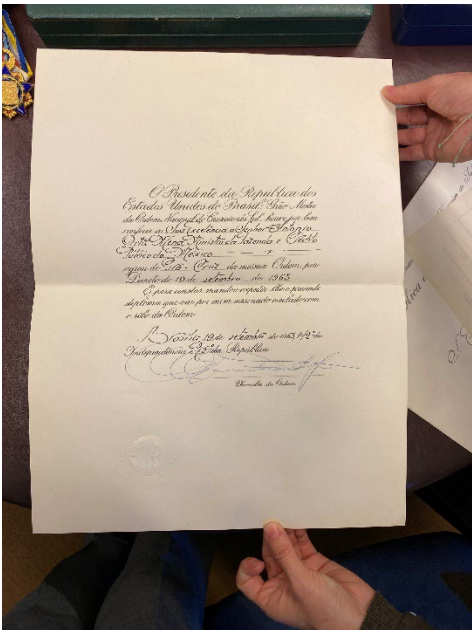 O Presidente da República dos
Estados Unidos do Brasil, Grão-Mestre
da Ordem Nacional do Cruzeiro do Sul, houve por bem
conferir a Sua Excelência o Senhor Antonio
Ortiz Mena, Ministro da Fazenda e Crédito
Público do México
o grau de Grã-Cruz da mesma Ordem, por
Decreto de 19 de setembro de 1963.
E para constar mandou expedir-lhe o presente
diploma que vai por mim assinado e selado com
o selo da Ordem.
Brasília, 19 de setembro de 1963, 142º da
Independência e 75º da República
Chanceler da Ordem